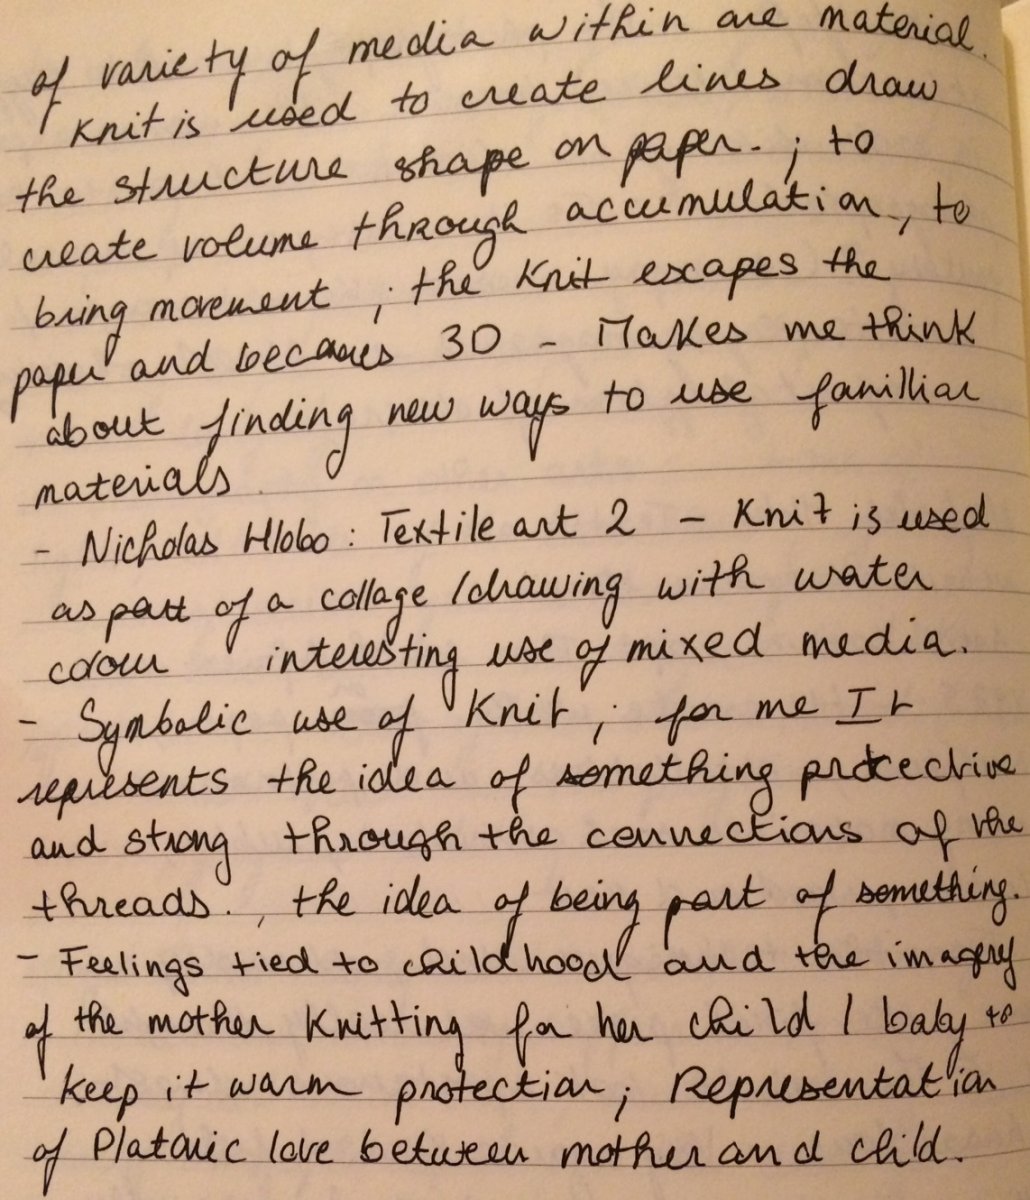 of variety of media within one material.
Knit is used to create lines draw
the structure shape on paper. ; to
create volume through accumulation, to
bring movement ; the Knit escapes the
paper and becomes 3D - Makes me think
about finding new ways to use familliar
materials.
- Nicholas Hlobo : Textile art 2 - Knit is used
as part of a collage /drawing with water
colour interesting use of mixed media.
- Symbolic use of Knit ; for me It
represents the idea of something protective
and strong through the connections of the
threads. , the idea of being part of something.
- Feelings tied to childhood and the imagery
of the mother Knitting for her child / baby to
keep it warm protection ; Representation
of Platonic love between mother and child.